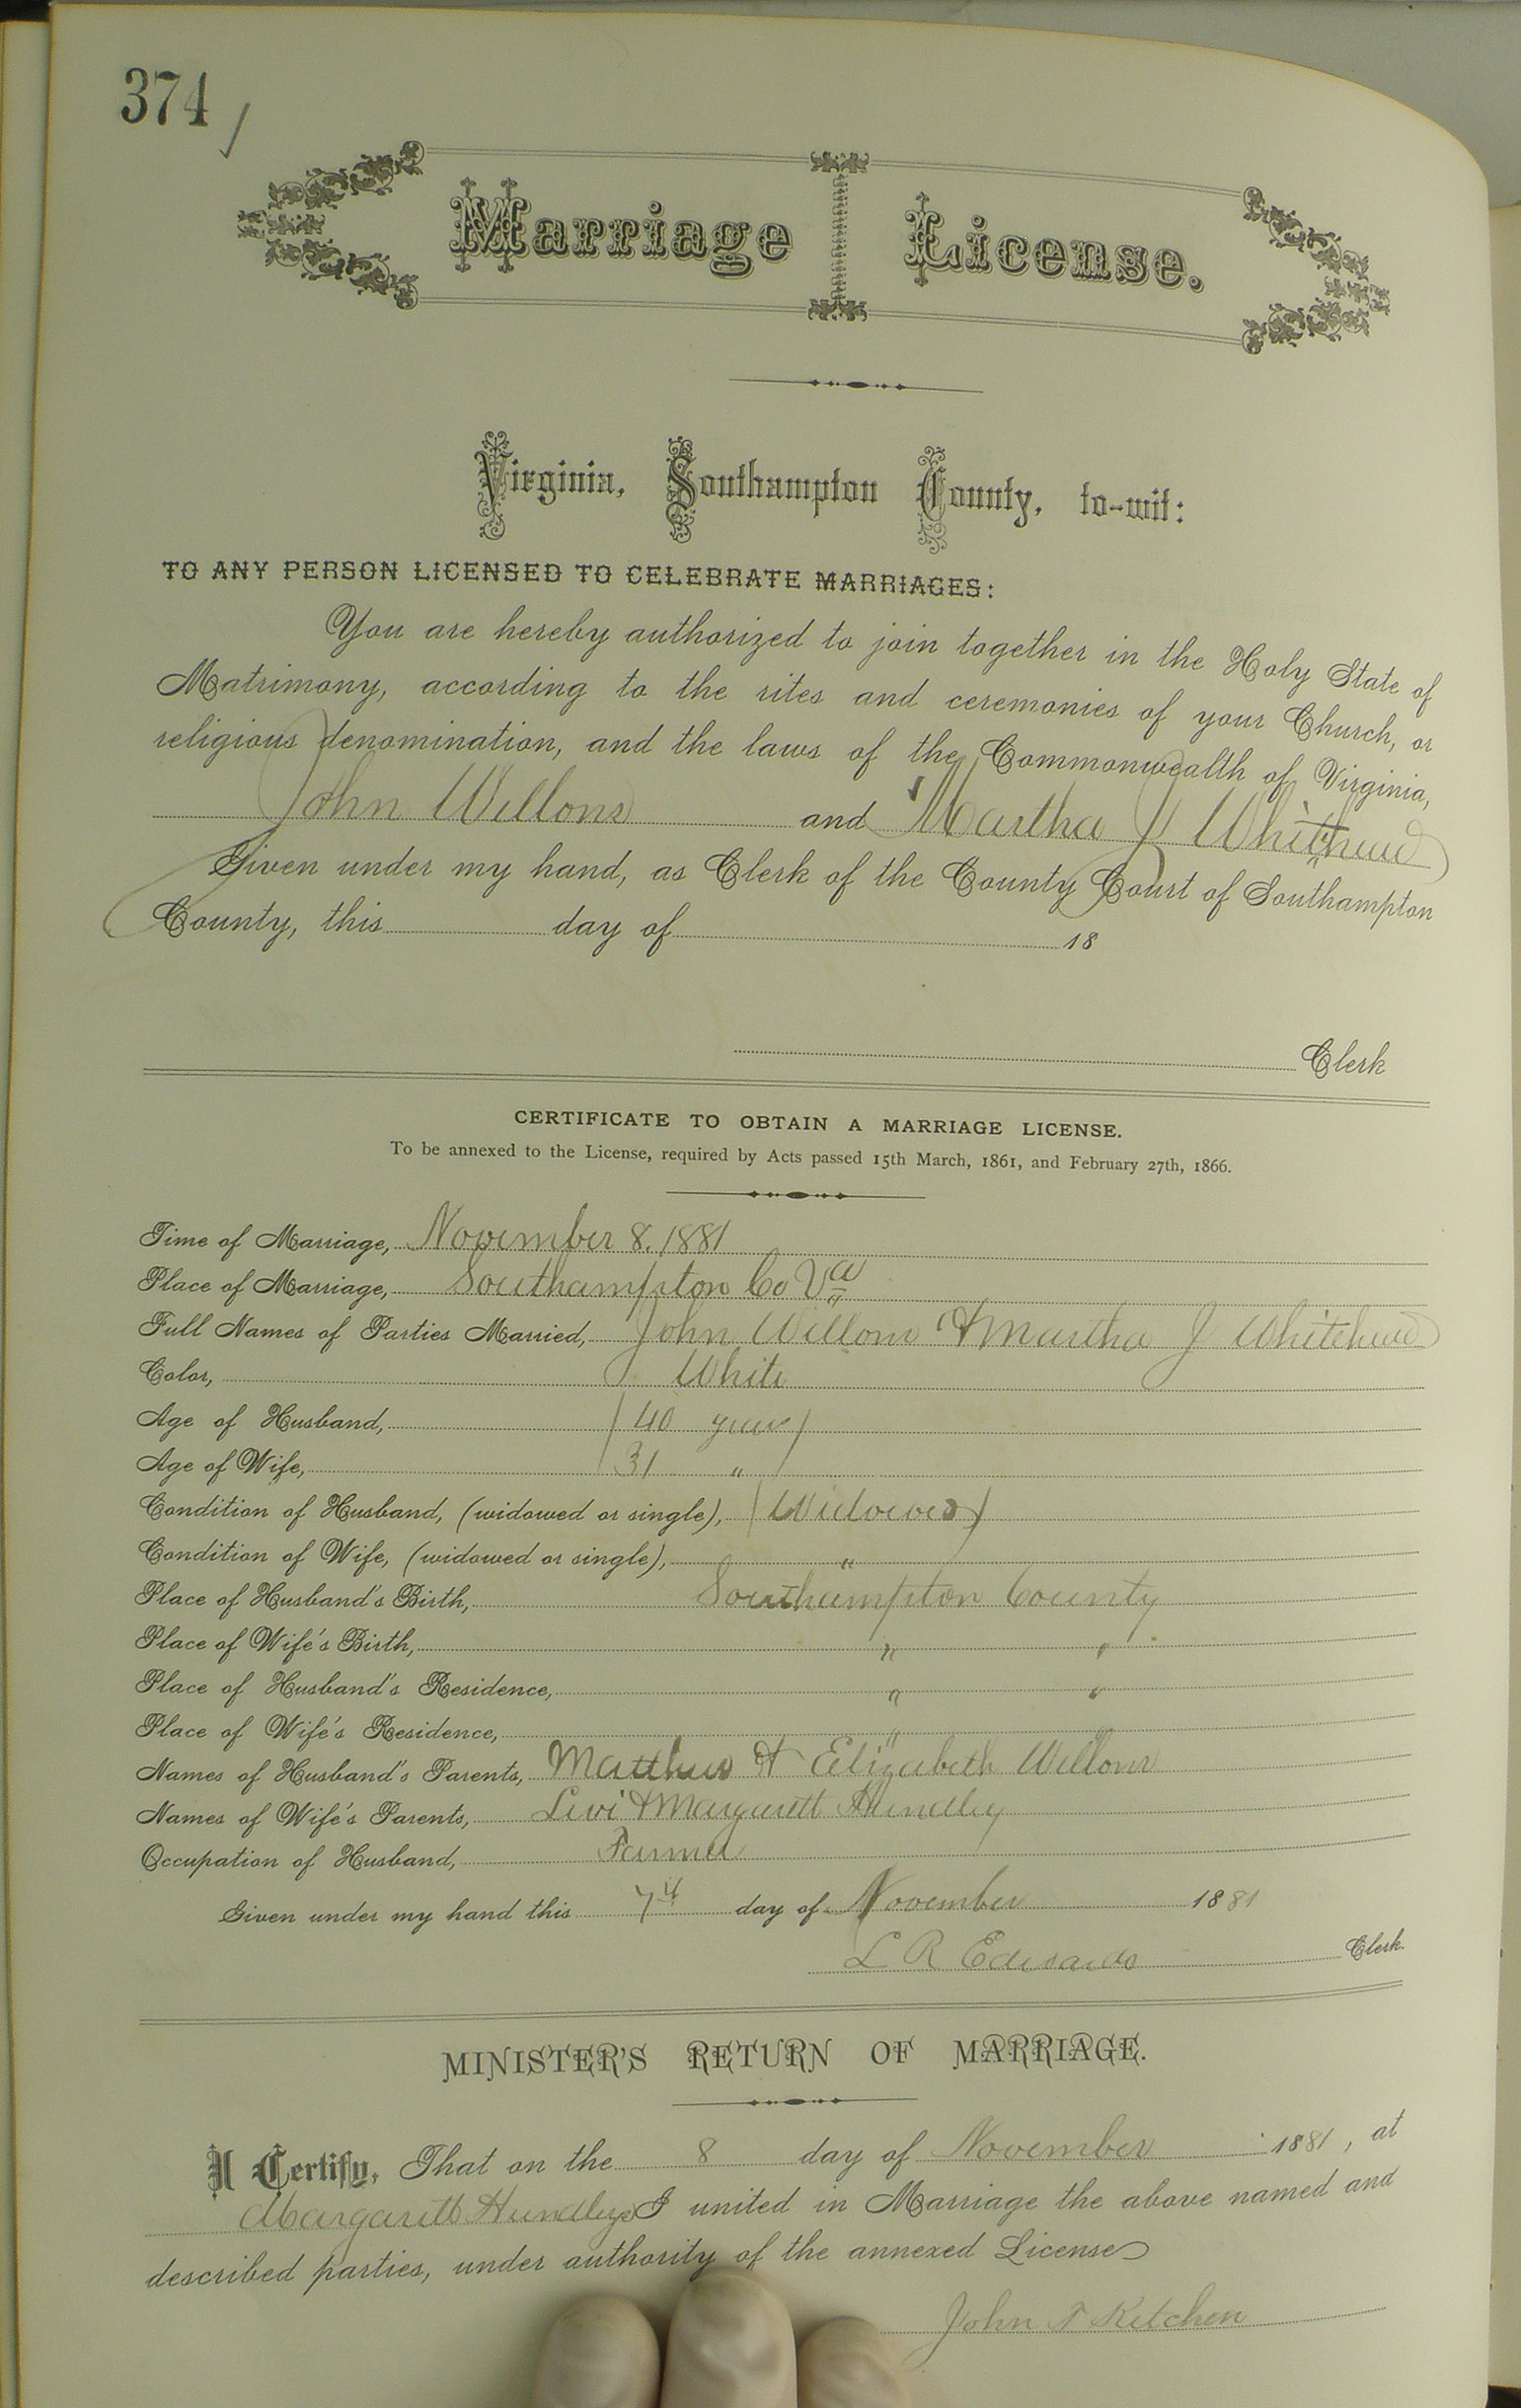 374
Marriage License.
Virginia, Southampton County, to-wit:
TO ANY PERSON LICENSED TO CELEBRATE MARRIAGES:
You are hereby authorized to join together in the Holy State of
Matrimony, according to the rites and ceremonies of your Church, or
religious denomination, and the laws of the Commonwealth of Virginia,
John Willons and Martha J Whitehead
Given under my hand, as Clerk of the County Court of Southampton
County, this day of 18
Clerk
CERTIFICATE TO OBTAIN A MARRIAGE LICENSE.
To be annexed to the License, required by Acts passed 15th March, 1861, and February 27th, 1866.
Time of Marriage, November 8. 1881
Place of Marriage, Southampton Co Va
Full Names of Parties Married, John Willons & Martha J Whitehead
Color, White
Age of Husband, 40 years
Age of Wife, 31 "
Condition of Husband, (widowed or single), Widowed
Condition of Wife, (widowed or single), "
Place of Husband's Birth, Southampton County
Place of Wife's Birth, " "
Place of Husband's Residence, " "
Place of Wife's Residence, " "
Names of Husband's Parents, Matthew & Elizabeth Willons
Names of Wife's Parents, Levi & Margarett Hundley
Occupation of Husband, Farmer
Given under my hand this 7th day of November 1881
L R Edwards Clerk.
MINISTER'S RETURN OF MARRIAGE.
I Certify, That on the 8 day of November 1881, at
Margarett Hundleys I united in Marriage the above named and
described parties, under authority of the annexed License
John T Kitchen